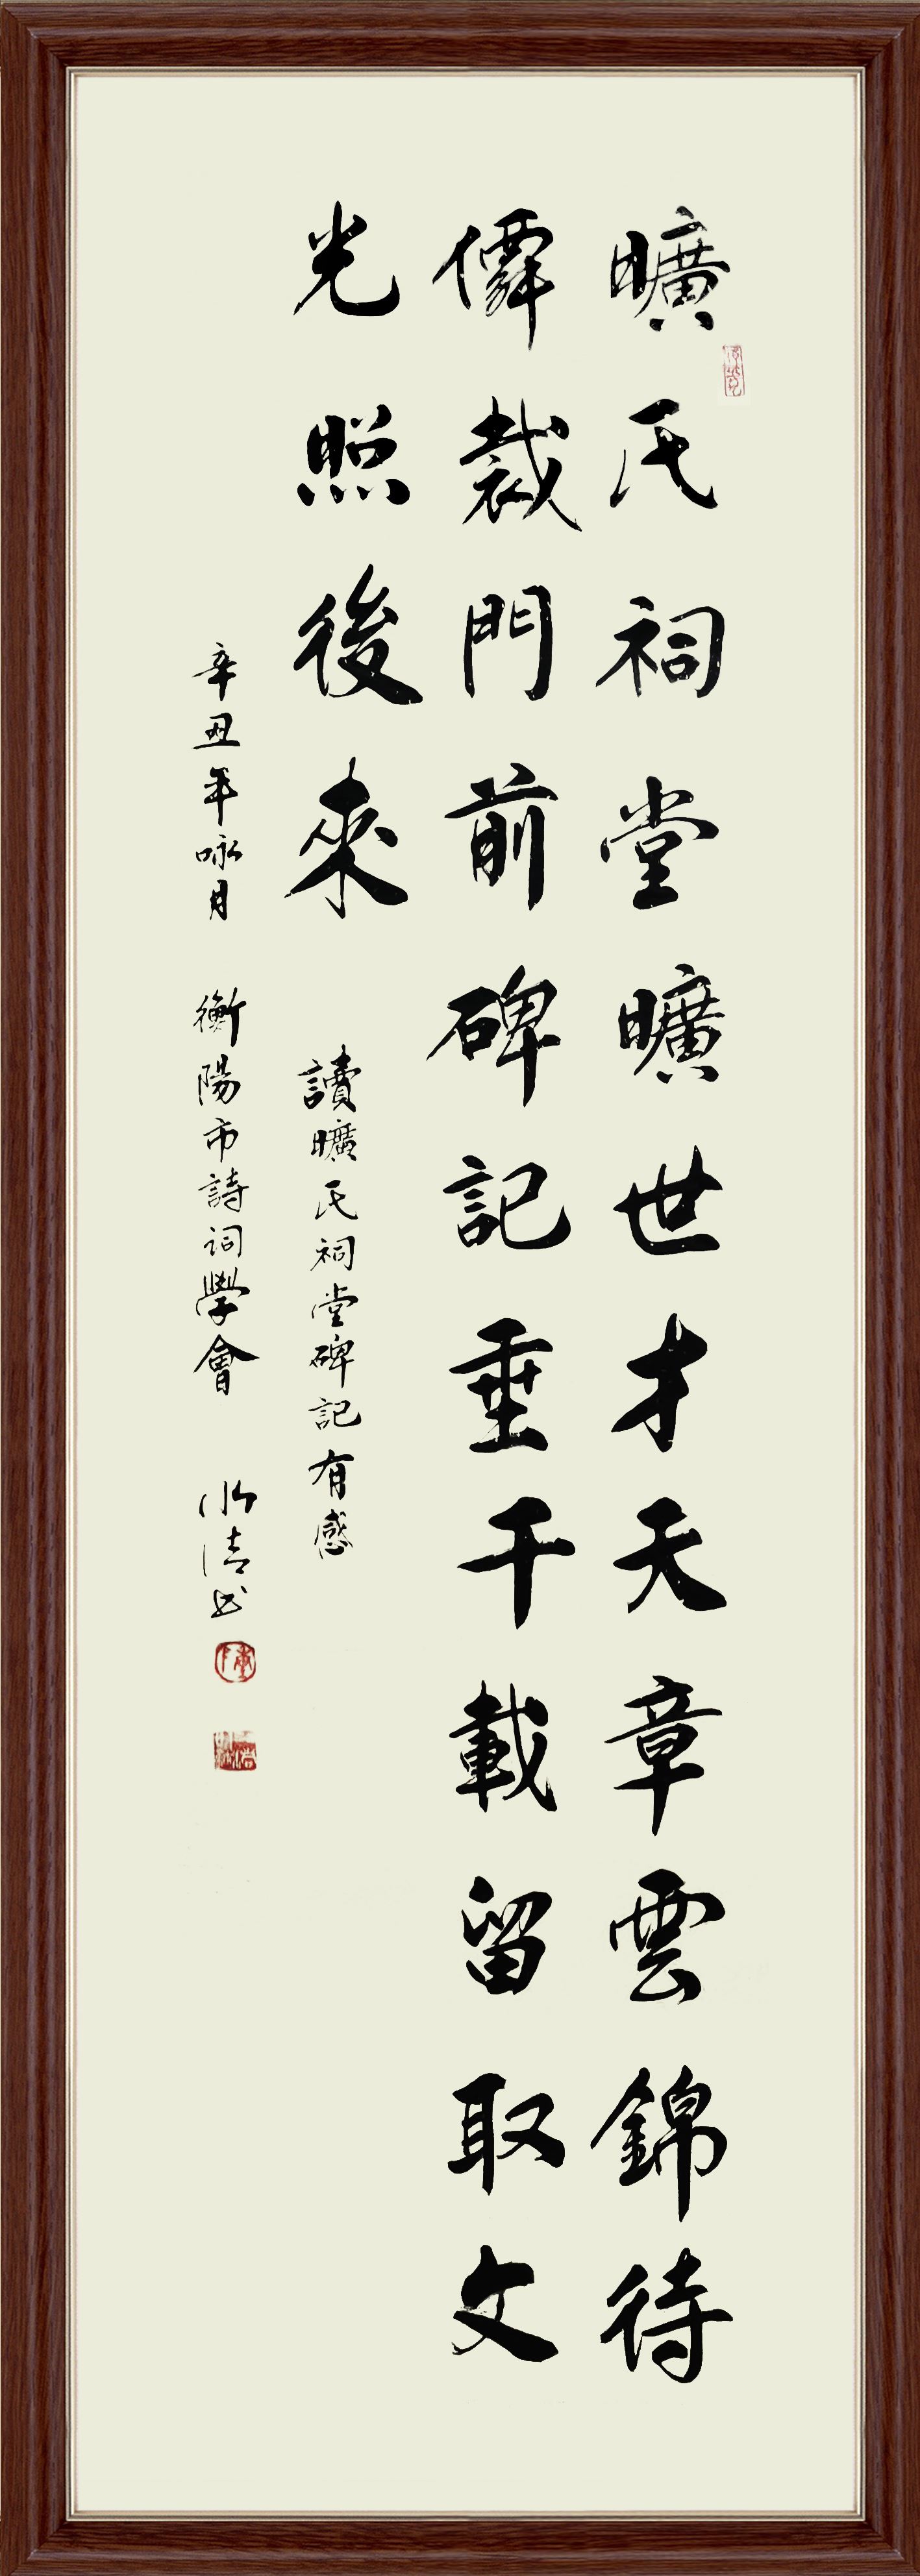 曠氏祠堂曠世才天章雲錦待
僊裁門前碑記垂千載留取文
光照後來
讀曠氏祠堂碑記有感
辛丑年咏月 衡陽市詩詞學會 清书